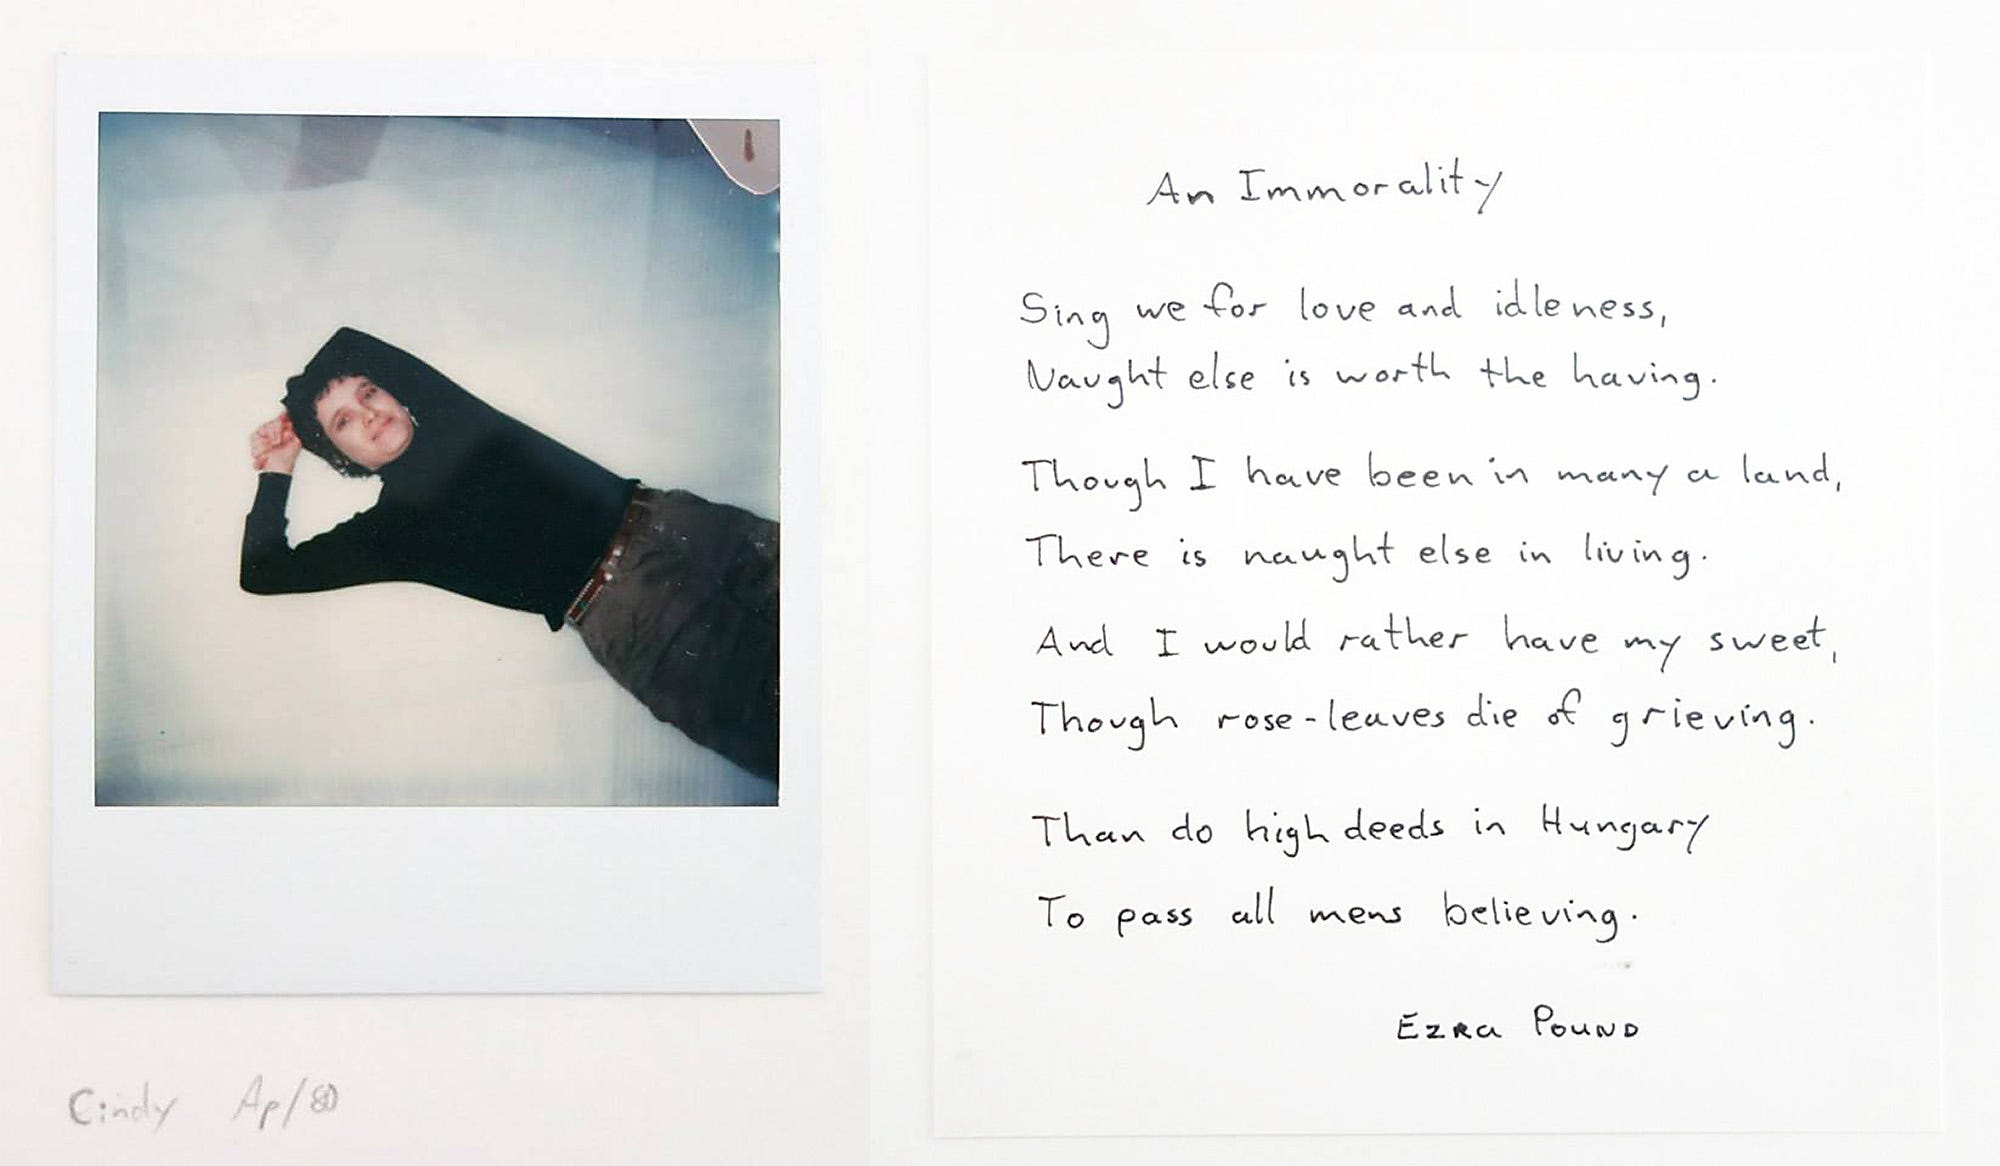 An Immorality
Sing we for love and idleness,
Naught else is worth the having.
Though I have been in many a land,
There is naught else in living.
And I would rather have my sweet,
Though rose-leaves die of grieving.
Than do high deeds in Hungary
To pass all mens believing.
Ezra Pound
Cindy Ap/80